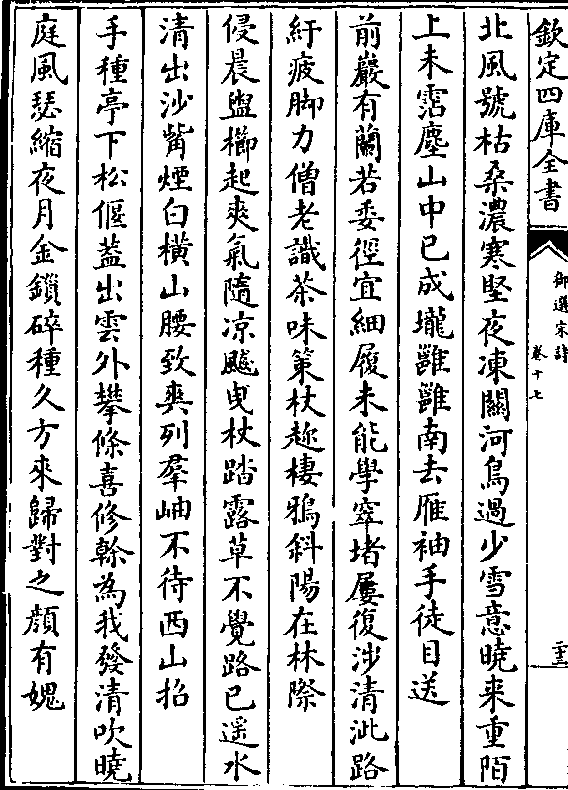 欽定四庫全書
御選宋詩
卷十七
二十三
北風號枯桑濃寒堅夜凍關河鳥過少雪意曉来重陌
上未霑塵山中已成壠雝雝南去雁袖手徒目送
前巖有蘭若委徑宜細履未能學窣堵屢復涉清泚路
紆疲脚力僧老識茶味策杖趂棲鴉斜陽在林際
侵晨盥櫛起爽氣隨凉飈曵杖踏露草不覺路已遥水
清出沙觜煙白橫山腰致爽列羣岫不待西山招
手種亭下松偃葢出雲外攀條喜修榦為我發清吹曉
庭風瑟縮夜月金鎖碎種久方來歸對之顔有媿